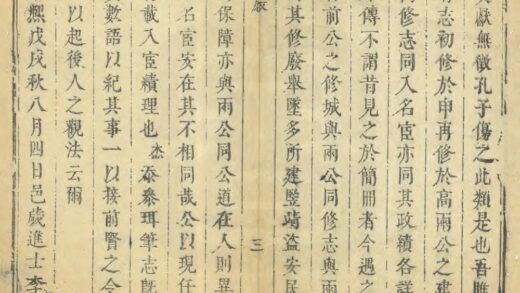 文獻無徵孔子傷之此類是也吾睢
志初修於申再修於高兩公之事
修志同入名宦亦同其政績各詳
傳不謂昔見之於簡冊者今遇之
前公之修城與兩公同修志與兩
其修廢舉墜多所建豎靖盜安民
三
保障亦與兩公同公道在人則異
名宦安在其不相同哉公以現任
載入宦績理也杰忝泰珥筆志旣
數語以紀其事一以接前賢之令
以起後人之觀法云爾
熙戊戌秋八月四日邑歲進士李